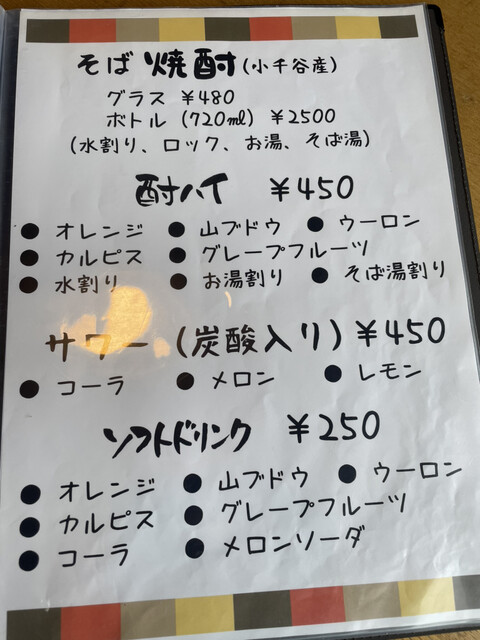 そば 焼酎(小千谷産)
グラス ¥480
ボトル (720ml) ¥2500
(水割り、ロック、お湯、そば湯)
酎ハイ ¥450
● オレンジ ● 山ブドウ ● ウーロン
● カルピス ● グレープフルーツ
● 水割り ● お湯割り ● そば湯割り
サワー(炭酸入り)¥450
● コーラ ● メロン ● レモン
ソフトドリンク ¥250
● オレンジ ● 山ブドウ ● ウーロン
● カルピス ● グレープフルーツ
● コーラ ● メロンソーダ